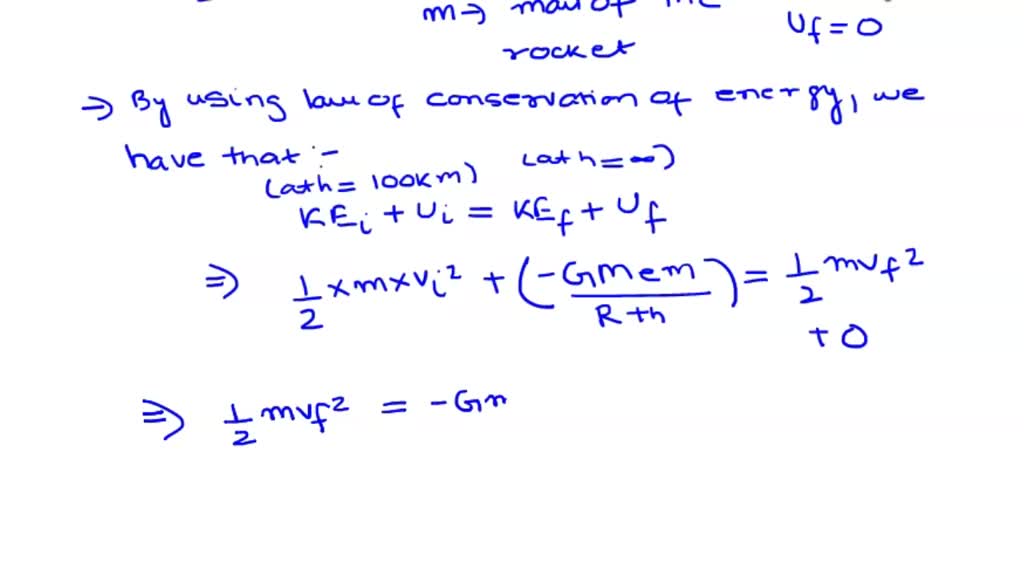 m→ mass of the Uf = 0
rocket
→ By using law of conservation of energy, we
have that :-
(at h = 100km) (at h = ∞)
KEi + Ui = KEf + Uf
⇒ 1/2 × m × vi² + (-GMem/R+h) = 1/2 mvf²
+ 0
⇒ 1/2 mvf² = -Gm